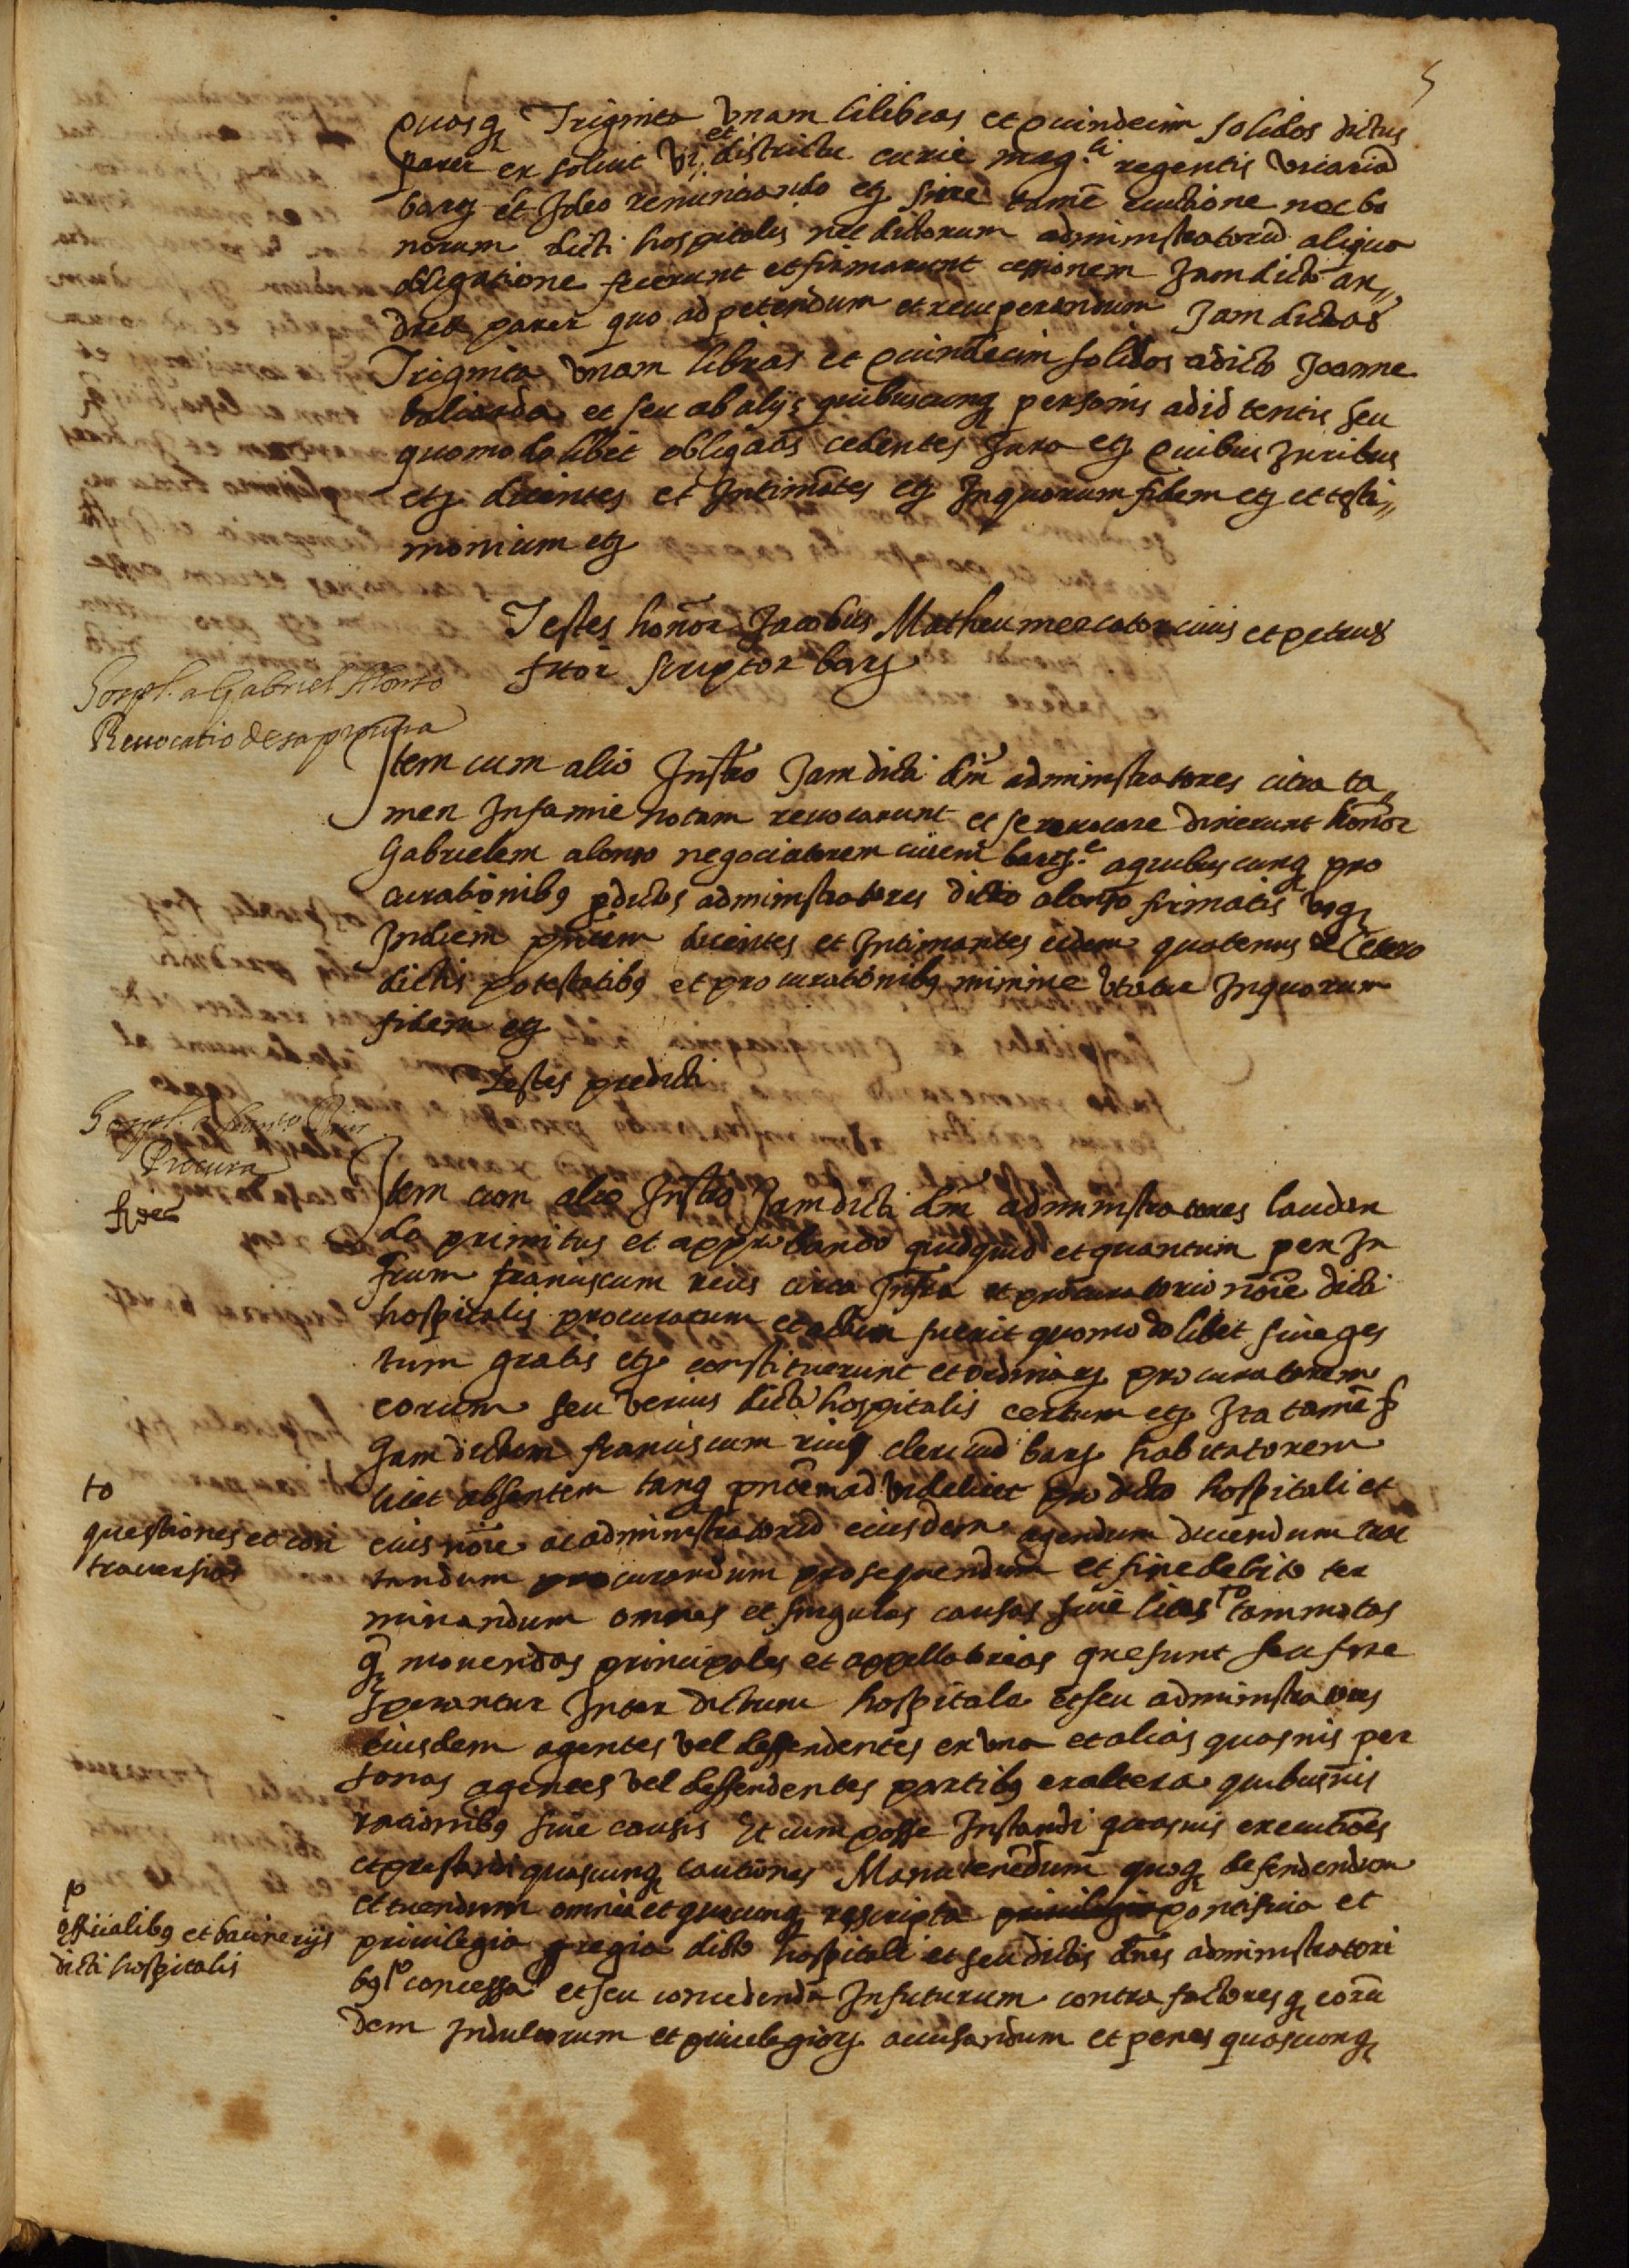 5
quasq Triginta vnam lilibras et quindecim solidos dictus
parer exsoluit vi et districtu curie mag.ci regentis vicariã
barⁿ et Ideo renunciando etc sine tamẽ euictione nec bo
norum dicti hospitalis nec dictorum administratorũ aliqua
obligatione fecerunt et firmarunt cessionem Jamdicto an,,
dreæ parer quo ad petendum et recuperandum Jam dictas
Triginta vnam libras et quindecim solidos a dicto Joanne
baliarda et seu ab alijs quibuscunq personis ad id tentis seu
quomodolibet obligatis cedentes Jura etc quibus Juribus
etc dicentes et Intimãtes etc Inquorum fidem etc et testi,,
monium etc
Testes honor. Jacobus Matheu mercator ciuis et petrus
fitor scriptor barⁿ
Sospl. a Gabriel Alonso
Reuocatio de sa procura
Item cum alio Instrõ Jam dicti dñi administratores citra ta,,
men Infamie notam reuocarunt et se reuocare dixerunt honor
Gabrielem alonso negociatorem ciuem barⁿ.e aquibuscunq pro
curationibq pdictos administratores dicto alonso firmatis vsq
Indiem pñtem dicentes et Intimantes eidem quatenus de cetero
dictis potestatibq et procurationibq minime vtatur Inquorum
fidem etc
Testes predicti
Procura
Item cum alio Instrõ Jamdicti dñi administratores laudan
do primitus et approbando quidquid et quantum per In
frum franciscum rius circa Infra et procuratorio noĩe dicti
hospitalis procuratum et actum fuerit quomodolibet siue ges
tum gratis etc constituerunt et ordinarⁿ procuratorem
eorum seu verius dicti hospitalis certum etc Ita tamẽ ꝙ
Jam dictum franciscum rius clericũ barⁿ habitatorem
licet absentem tanq pñtem ad videlicet pro dicto hospitali et
eius noĩe ac administratorũ eiusdem agendum ducendum trac
tandum procurandum prosequendum et fine debito ter
minandum omnes et singulas causas siue lites to commotas
to
questiones et con
trauersias
q mouendas principales et appellatorias que sunt seu fore
sperantur Inter dictum hospitale et seu administratores
eiusdem agentes vel deffendentes ex vna et alias quasuis per
sonas agentes vel deffendentes partibq ex altera quibusuis
rationibq siue causis Et cum posse Instandi quasuis executiões
et prestandi quascunq cautiones Manutenẽdum quoq defendendum
et tuendum omnia et quecunq rescripta pontificia et
priuilegia regia dicto hospitali et seu dictis dñis administratori
bq to concessa et seu concedenda Infuturum contra factores q eorũ
p
officialibq et baciuerijs
dicti hospitalis
dem Indultorum et priuilegiorⁿ accusandum et penes quoscunq